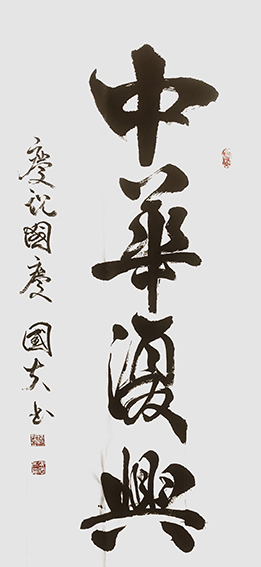 中華復興
慶祝國慶 國 书